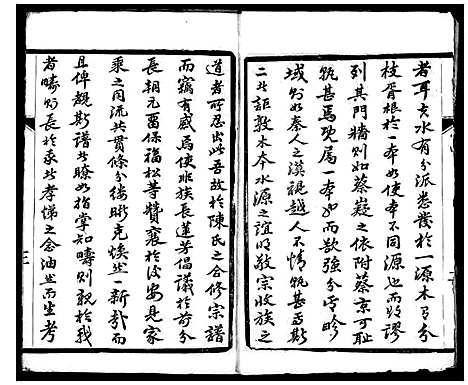 者耳夫水有分派悉發於一源木有分
枝胥根於一本如使本不同源也而將謬
列其門牆則如蔡嶷之依附蔡京可耻
孰甚焉既屬一本如而欲強分畛
域則如秦人之漠視越人不情孰甚焉斯
二者詎敦木本水源之誼明敬宗收族之
道者所忍出此吾故於陳氏之合修宗譜
而竊有感焉使非族長蓮芳倡議於前分
長朝元曁保福松等贊襄於後安見家
乘之同流共貫條分縷晰克煥然一新哉而
且俾覩斯譜者瞭如指掌知疇則親於我
者疇則長於我者孝悌之念油然而生考